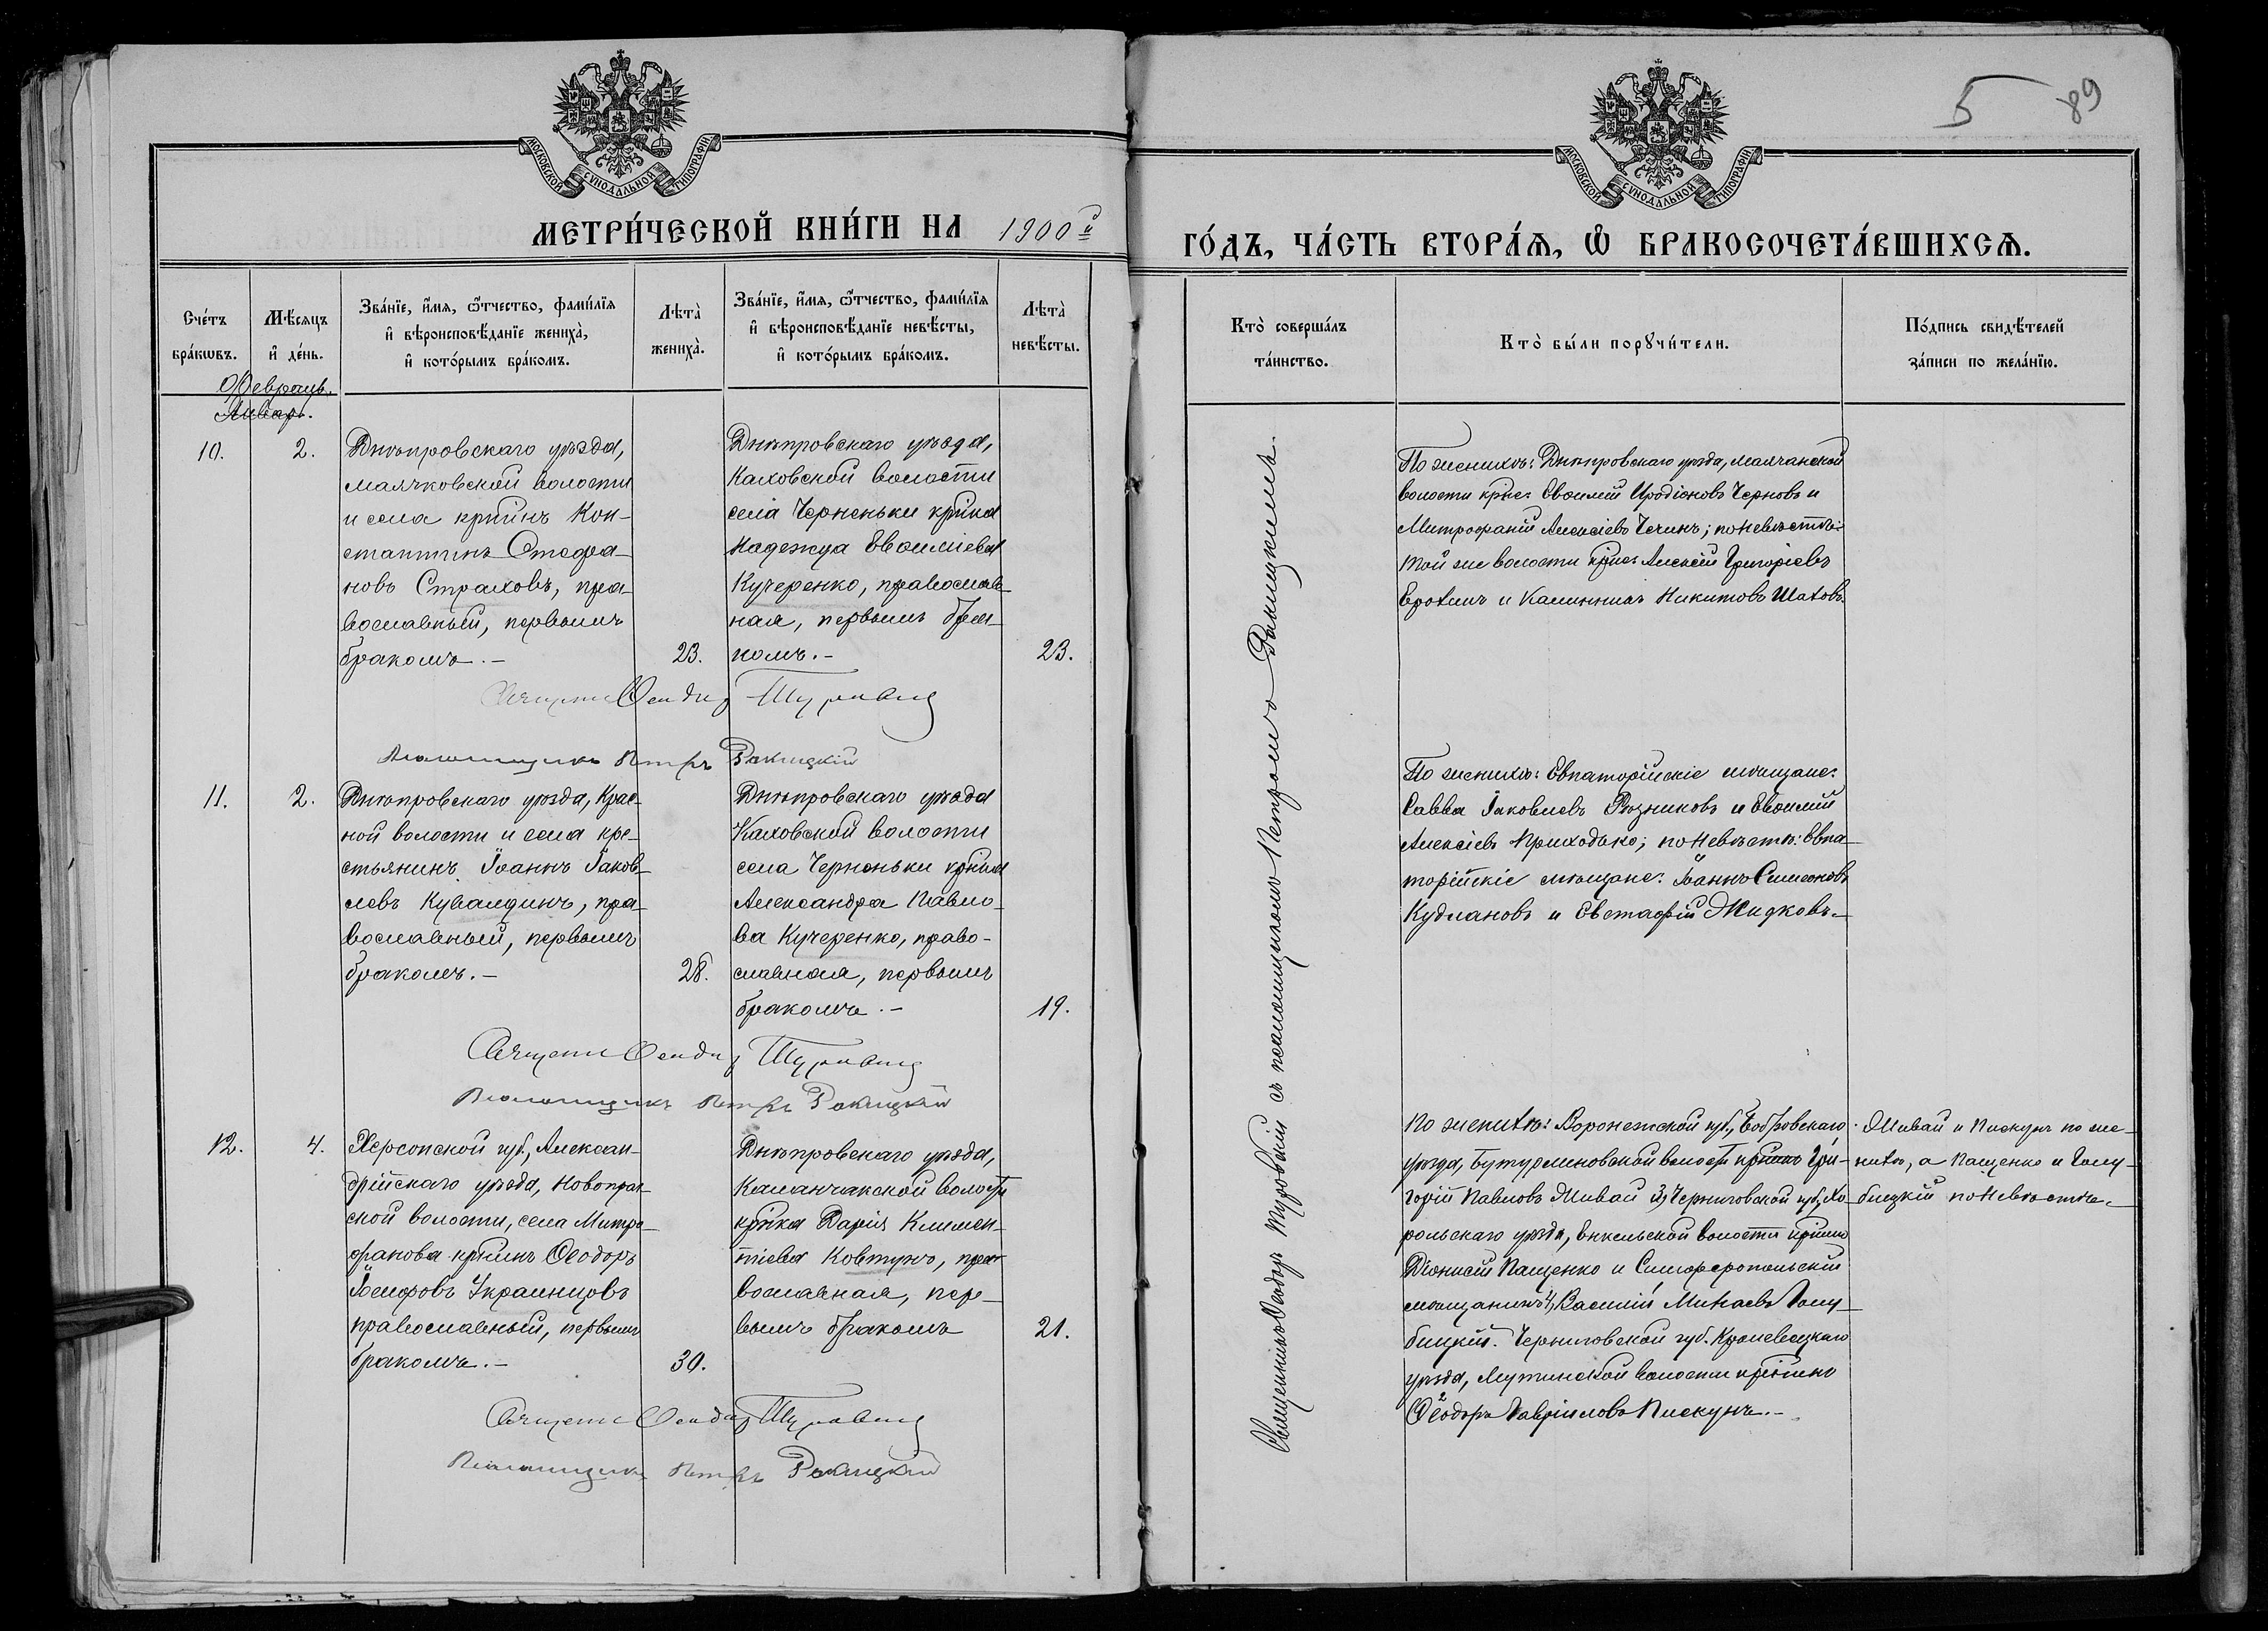 5 89
МОСКОВСКОЙ СѴНОДАЛЬНОЙ ТИПОГРАФІИ
МЕТРИ́ЧЕСКОЙ КНИ́ГИ НА 1900й
Сче́тъ бра́кωвъ.
Мѣ́сяцъ и҆ де́нь.
Зва́нїе, и҆́мя, ѻ҆́тчество, фами́лїя
и҆ вѣроисповѣ́данїе жениха̀,
и҆ кото́рымъ бра́комъ.
Лѣта̀
жениха̀.
Зва́нїе, и҆́мя, ѻ҆́тчество, фами́лїя
и҆ вѣроисповѣ́данїе невѣ́сты,
и҆ кото́рымъ бра́комъ.
Лѣта̀
невѣ́сты.
Февраль.
Январь.
10.
2.
Днѣпровскаго уѣзда,
Маячковской волости
и села кр–нинъ Кон-
стантинъ Стефа-
новъ Страховъ, пра-
вославный, первымъ
бракомъ.-
23.
Днѣпровскаго уѣзда,
Каховской волости
села Черненьки кр–нка
Надежда Евѳиміева
Кучеренко, православ-
ная, первымъ бра-
комъ.-
23.
Псаломщикъ Петръ Ракицкій
11.
2.
Днѣпровскаго уѣзда, Крас-
ной волости и села кре-
стьянинъ Іоаннъ Іаков-
левъ Кувалдинъ, пра-
вославный, первымъ
бракомъ.-
28.
Днѣпровскаго уѣзда
Каховской волости
села Черненьки кр–нка
Александра Павло-
ва Кучеренко, право-
славная, первымъ
бракомъ.-
19.
Псаломщикъ Петръ Ракицкій
12.
4.
Херсонской губ., Алексан-
дрійскаго уѣзда, Новопраж-
ской волости, села Митро-
фанова кр–нинъ Ѳеодоръ
Іосифовъ Украинцовъ
православный, первымъ
бракомъ.-
30.
Днѣпровскаго уѣзда,
Каланчакской волости
кр–нка Дарія Климен-
тіева Ковтунъ, пра-
вославная, пер-
вымъ бракомъ
21.
Псаломщикъ Петръ Ракицкій
МОСКОВСКОЙ СѴНОДАЛЬНОЙ ТИПОГРАФІИ
ГО́ДЪ, ЧА́СТЬ ВТОРА́Я, Ѽ БРАКОСОЧЕТА́ВШИХСЯ.
Кто̀ соверша́лъ
та́инство.
Кто̀ бы́ли порꙋчи́тели.
По́дпись свидѣ́телей
за́писи по жела́нїю.
Священникъ Ѳеодоръ Туровскій съ псаломщикомъ Петромъ Ракицкимъ.
По женихѣ: Днѣпровскаго уѣзда, Маячковской
волости кр–не: Евѳимій Иродіоновъ Черновъ и
Митрофаній Алексіевъ Чечинъ; по невѣстѣ:
той же волости кр–не: Алексій Григоріевъ
и Калинникъ Никитовъ Шатовъ.
По женихѣ: Евпаторійскіе мѣщане:
Савва Іаковлевъ Рѣзниковъ и Евѳимій
Алексіевъ Приходько; по невѣстѣ: Евпа-
торійскіе мѣщане: Іоаннъ Симеоновъ
Кудлановъ и Евстафій Жидковъ.-
По женихѣ: Воронежской губ., Бобровскаго
уѣзда, Бутурлиновской волости кр–нинъ Гри-
горій Павловъ Живай 3) Черниговской губ., Хо-
рольскаго уѣзда, волости кр–нинъ
Діонисій Пащенко и Симферопольскій
мѣщанинъ 4) Василій Минаевъ Голу-
бицкій. Черниговской губ. Кролевецкаго
уѣзда, Мутинской волости кр–нинъ
2 Ѳеодоръ Гавріиловъ Пискунъ.-
Живай и Пискунъ по же-
нихѣ, а Пащенко и Голу-
бицкій по невѣстѣ.-